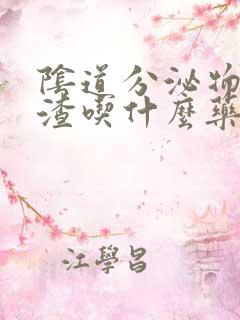 陰道分泌物
渣喫什麼藥
江學昌